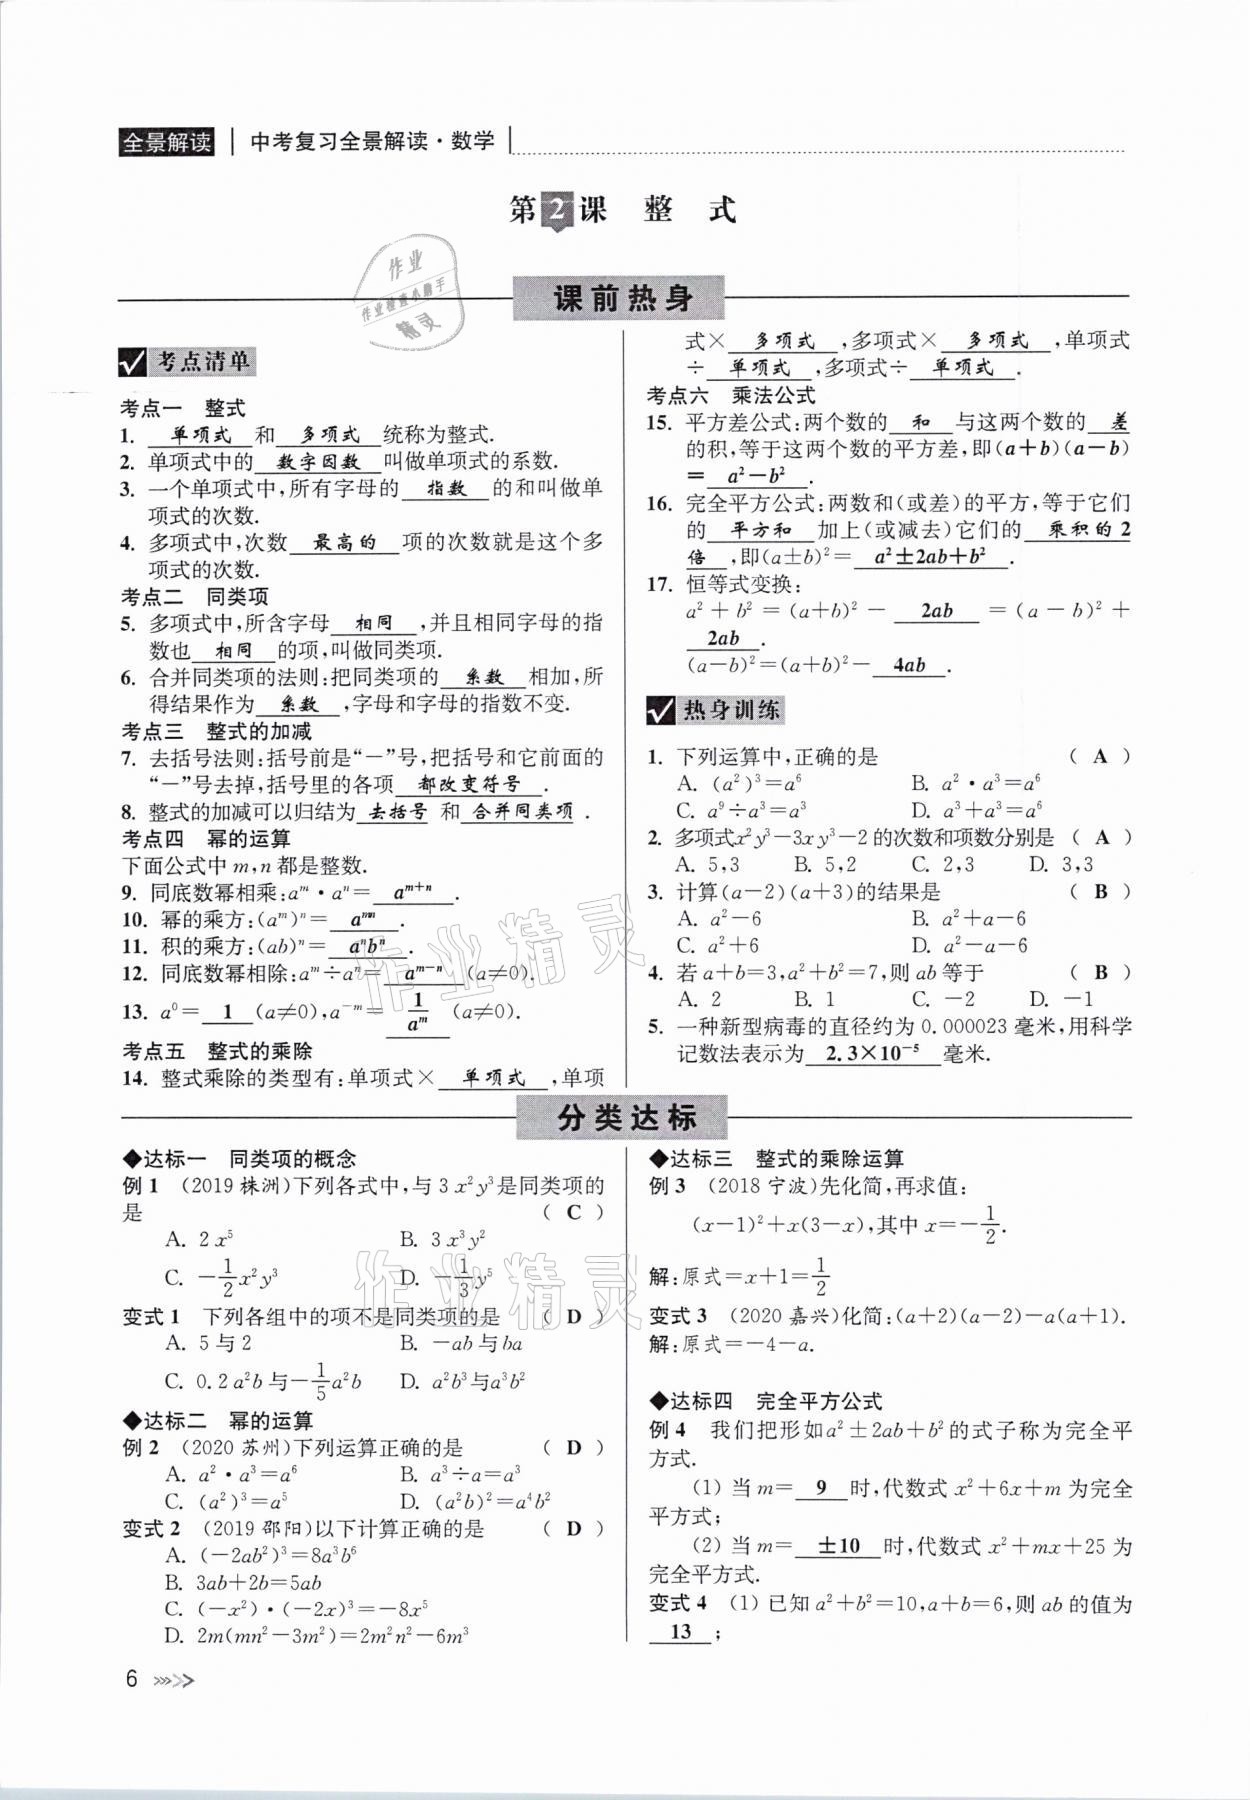 全景解读 中考复习全景解读·数学
第2课 整 式
课前热身
考点清单
考点一 整式
1. 单项式 和 多项式 统称为整式.
2. 单项式中的 数字因数 叫做单项式的系数.
3. 一个单项式中,所有字母的 指数 的和叫做单
项式的次数.
4. 多项式中,次数 最高的 项的次数就是这个多
项式的次数.
考点二 同类项
5. 多项式中,所含字母 相同 ,并且相同字母的指
数也 相同 的项,叫做同类项.
6. 合并同类项的法则:把同类项的 系数 相加,所
得结果作为 系数 ,字母和字母的指数不变.
考点三 整式的加减
7. 去括号法则:括号前是“－”号,把括号和它前面的
“－”号去掉,括号里的各项 都改变符号 .
8. 整式的加减可以归结为 去括号 和 合并同类项 .
考点四 幂的运算
下面公式中 m,n 都是整数.
9. 同底数幂相乘:aᵐ·aⁿ= aᵐ⁺ⁿ .
10. 幂的乘方:(aᵐ)ⁿ= aᵐⁿ .
11. 积的乘方:(ab)ⁿ= aⁿbⁿ .
12. 同底数幂相除:aᵐ÷aⁿ= aᵐ⁻ⁿ (a≠0).
13. a⁰= 1 (a≠0),a⁻ᵐ= 1/aᵐ (a≠0).
考点五 整式的乘除
14. 整式乘除的类型有:单项式× 单项式 ,单项
式× 多项式 ,多项式× 多项式 ,单项式
÷ 单项式 ,多项式÷ 单项式 .
考点六 乘法公式
15. 平方差公式:两个数的 和 与这两个数的 差
的积,等于这两个数的平方差,即(a+b)(a－b)
= a²－b² .
16. 完全平方公式:两数和(或差)的平方,等于它们
的 平方和 加上(或减去)它们的 乘积的 2
倍 ,即(a±b)²= a²±2ab+b² .
17. 恒等式变换:
a²+b²=(a+b)²－ 2ab =(a－b)²+
2ab .
(a－b)²=(a+b)²－ 4ab .
热身训练
1. 下列运算中,正确的是 ( A )
A. (a²)³=a⁶ B. a²·a³=a⁶
C. a⁹÷a³=a³ D. a³+a³=a⁶
2. 多项式x²y³－3xy³－2的次数和项数分别是 ( A )
A. 5,3 B. 5,2 C. 2,3 D. 3,3
3. 计算(a－2)(a+3)的结果是 ( B )
A. a²－6 B. a²+a－6
C. a²+6 D. a²－a－6
4. 若a+b=3,a²+b²=7,则 ab 等于 ( B )
A. 2 B. 1 C. －2 D. －1
5. 一种新型病毒的直径约为 0.000023 毫米,用科学
记数法表示为 2.3×10⁻⁵ 毫米.
分类达标
◆达标一 同类项的概念
例 1 (2019 株洲)下列各式中,与 3x²y³是同类项的
是 ( C )
A. 2x⁵ B. 3x³y²
C. －1/2x²y³ D. －1/3y⁵
变式 1 下列各组中的项不是同类项的是 ( D )
A. 5 与 2 B. －ab 与 ba
C. 0.2a²b 与－1/5a²b D. a²b³与a³b²
◆达标二 幂的运算
例 2 (2020 苏州)下列运算正确的是 ( D )
A. a²·a³=a⁶ B. a³÷a=a³
C. (a²)³=a⁵ D. (a²b)²=a⁴b²
变式 2 (2019 邵阳)以下计算正确的是 ( D )
A. (－2ab²)³=8a³b⁶
B. 3ab+2b=5ab
C. (－x²)·(－2x)³=－8x⁵
D. 2m(mn²－3m²)=2m²n²－6m³
◆达标三 整式的乘除运算
例 3 (2018 宁波)先化简,再求值:
(x－1)²+x(3－x),其中 x=－1/2.
解:原式=x+1=1/2
变式 3 (2020 嘉兴)化简:(a+2)(a－2)－a(a+1).
解:原式=－4－a.
◆达标四 完全平方公式
例 4 我们把形如a²±2ab+b²的式子称为完全平
方式.
(1) 当 m= 9 时,代数式 x²+6x+m 为完全
平方式;
(2) 当 m= ±10 时,代数式 x²+mx+25 为
完全平方式.
变式 4 (1) 已知 a²+b²=10,a+b=6,则 ab 的值为
13 ;
6
作业
作业检查小助手
精灵
作业精灵
作业精灵